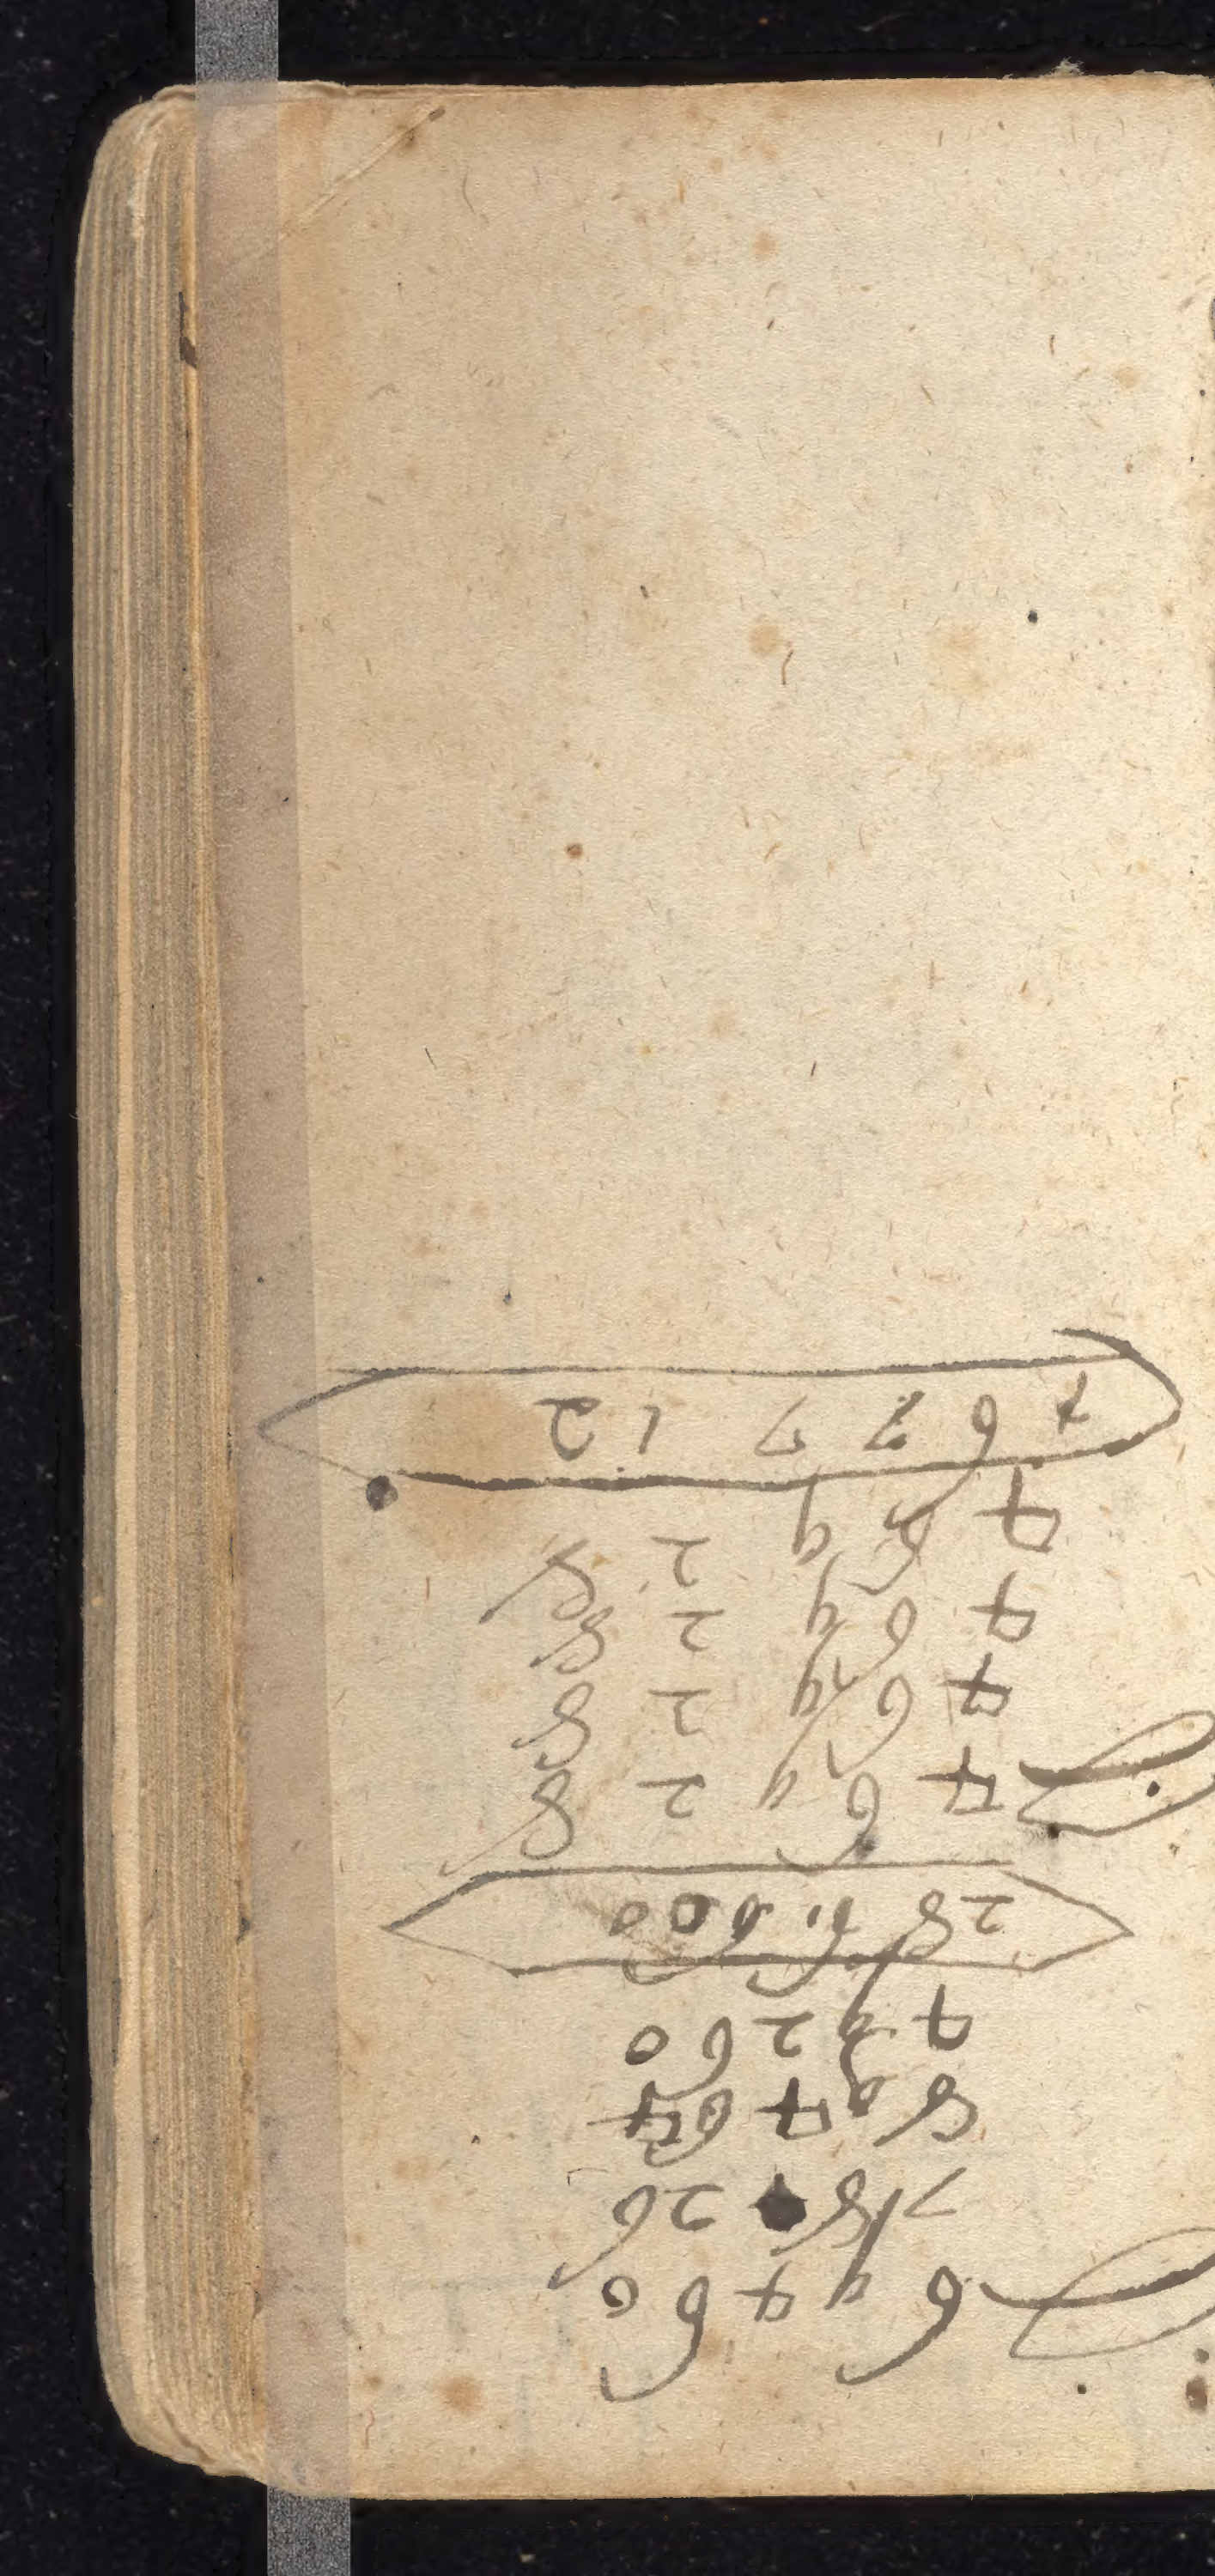 6 9 4 6 0
7 8 2 6
8 9 4 6 4
4 9 2 6 0
2 8 6 6 0 0
4 6 9 2 8
4 6 9 2 8
4 6 9 2 8
4 6 9 2 8
4 6 7 7 1 2